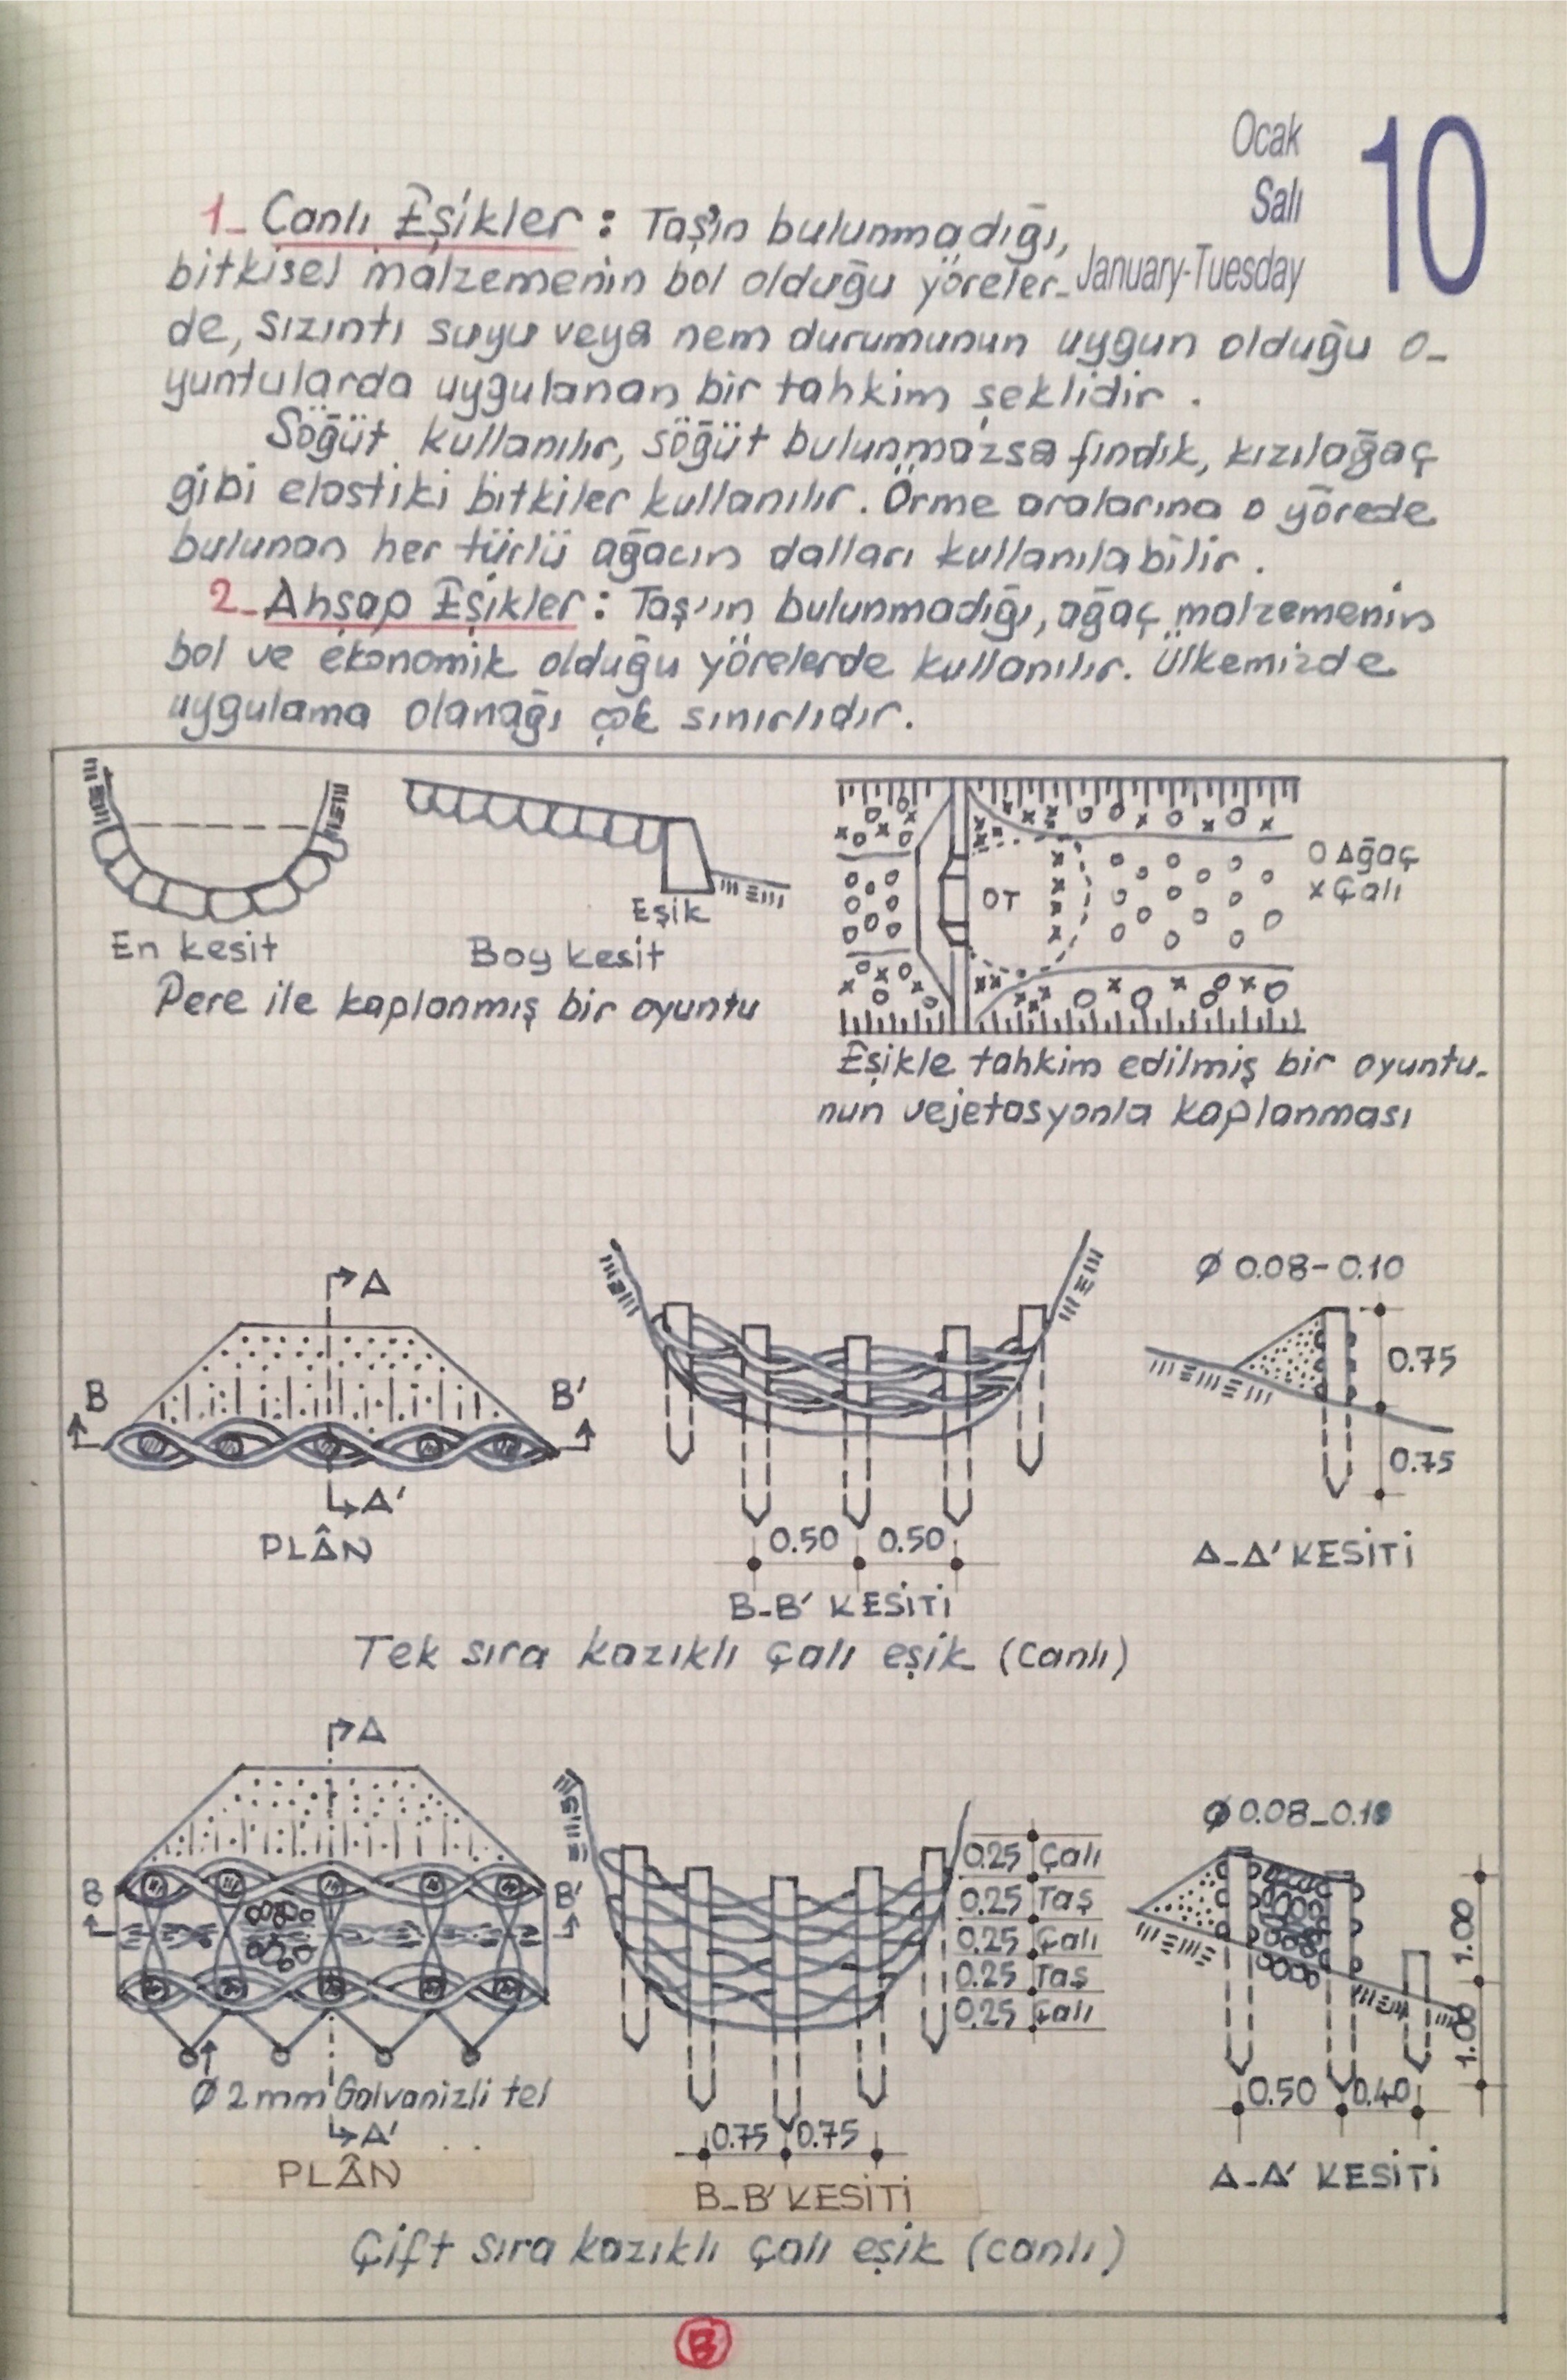 Ocak
Salı
January-Tuesday
10
1- Canlı Eşikler : Taş'ın bulunmadığı,
bitkisel malzemenin bol olduğu yöreler-
de, sızıntı suyu veya nem durumunun uygun olduğu o-
yuntularda uygulanan bir tahkim şeklidir .
Söğüt kullanılır, söğüt bulunmazsa fındık, kızılağaç
gibi elastiki bitkiler kullanılır. Örme aralarına o yörede
bulunan her türlü ağacın dalları kullanılabilir .
2- Ahşap Eşikler : Taş'ın bulunmadığı, ağaç malzemenin
bol ve ekonomik olduğu yörelerde kullanılır. Ülkemizde
uygulama olanağı çok sınırlıdır.
Eşik
En kesit
Boy kesit
Pere ile kaplanmış bir oyuntu
O Ağaç
x Çalı
OT
Eşikle tahkim edilmiş bir oyuntu-
nun vejetasyonla kaplanması
A
B
B'
A'
PLÂN
0.50 0.50
B-B' KESİTİ
Ø 0.08-0.10
0.75
0.75
A-A' KESİTİ
Tek sıra kazıklı çalı eşik (canlı)
A
B
B'
Ø 2 mm Galvanizli tel
A'
PLÂN
0.25 Çalı
0.25 Taş
0.25 Çalı
0.25 Taş
0.25 Çalı
0.75 0.75
B-B' KESİTİ
Ø 0.08-0.10
1.00
1.00
0.50 0.40
A-A' KESİTİ
Çift sıra kazıklı çalı eşik (canlı)
B